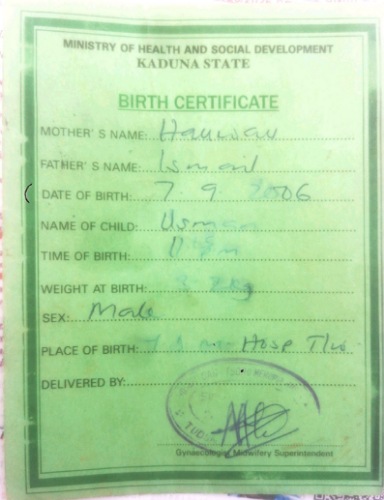 MINISTRY OF HEALTH AND SOCIAL DEVELOPMENT
KADUNA STATE
BIRTH CERTIFICATE
MOTHER' S NAME:
FATHER' S NAME: Ismail
DATE OF BIRTH: 7 9 2006
NAME OF CHILD: Usman
TIME OF BIRTH:
WEIGHT AT BIRTH: kg
SEX: Male
PLACE OF BIRTH: Hosp
DELIVERED BY:
Gynaecologist Midwifery Superintendent